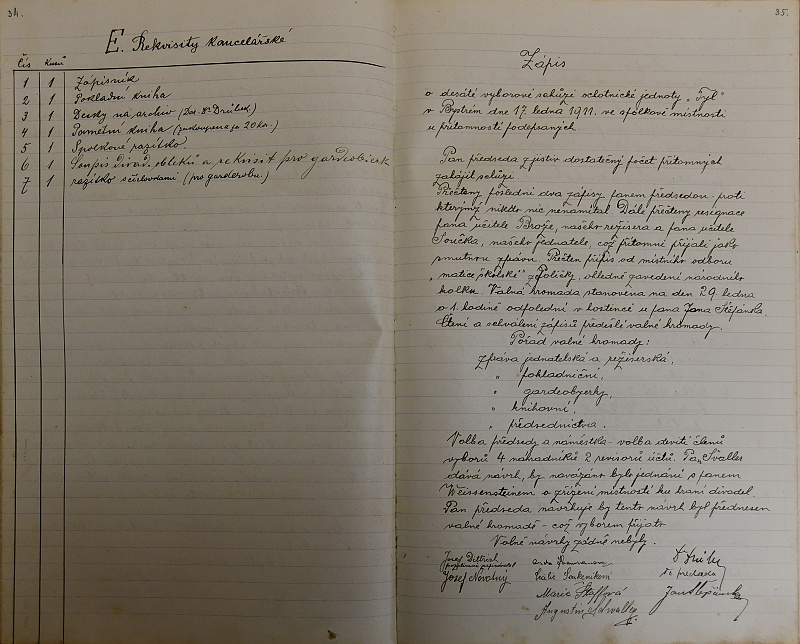 34.
E. Rekvisity kancelářské
Čís Kusů
1 1 Zápisník
2 1 Pokladní kniha
3 1 Desky na archiv (Dar. Dr. Drůbek.)
4 1 Pamětní kniha (zakoupena je 20 kor.)
5 1 Spolkové razítko
6 1 Soupis divad. obleků a rekvisit pro garderobicek
7 1 razítko s číslováním (pro garderobu.)
35.
Zápis
o desáté výborové schůzi ochotnické jednoty "Tyl"
v Bystrém dne 17. ledna 1911. ve spolkové místnosti
u přítomnosti podepsaných.
Pan předseda zjistiv dostatečný počet přítomných
zahájil schůzi.
Přečteny poslední dva zápisy panem předsedou proti
kterýmž nikdo nic nenamítal. Dále přečteny resignace
pana učitele Brože, našeho režisera a pana učitele
Součka, našeho jednatele, což přítomní přijali jako
smutnou zprávu. Přečten přípis od místního odboru
"matice školské" z Poličky, ohledně zavedení národního
kolku. Valná hromada stanovena na den 29. ledna
o 1. hodině odpolední v hostenci u pana Jana Štěpánka.
Čtení a schválení zápisů předešlé valné hromady.
Pořad valné hromady:
zpráva jednatelská a režiserská,
" pokladniční,
" garderobierky,
" knihovní,
" předsednictva.
Volba předsedy a náměstka - volba devíti členů
výborů 4 náhradníků 2 revisorů účtů. Pan Švalles
dává návrh, by navázáno bylo jednání s panem
Weissensteinem o zřízení místností ku hraní divadel.
Pan předseda navrhuje by tento návrh byl přednesen
valné hromadě - což výborem přijato
Volné návrhy žádné nebyly.
Josef Dittrich
Josef Novotný
Marie Štafflová
Augustin Schwalles
t. č. předseda
Jan Štěpánek